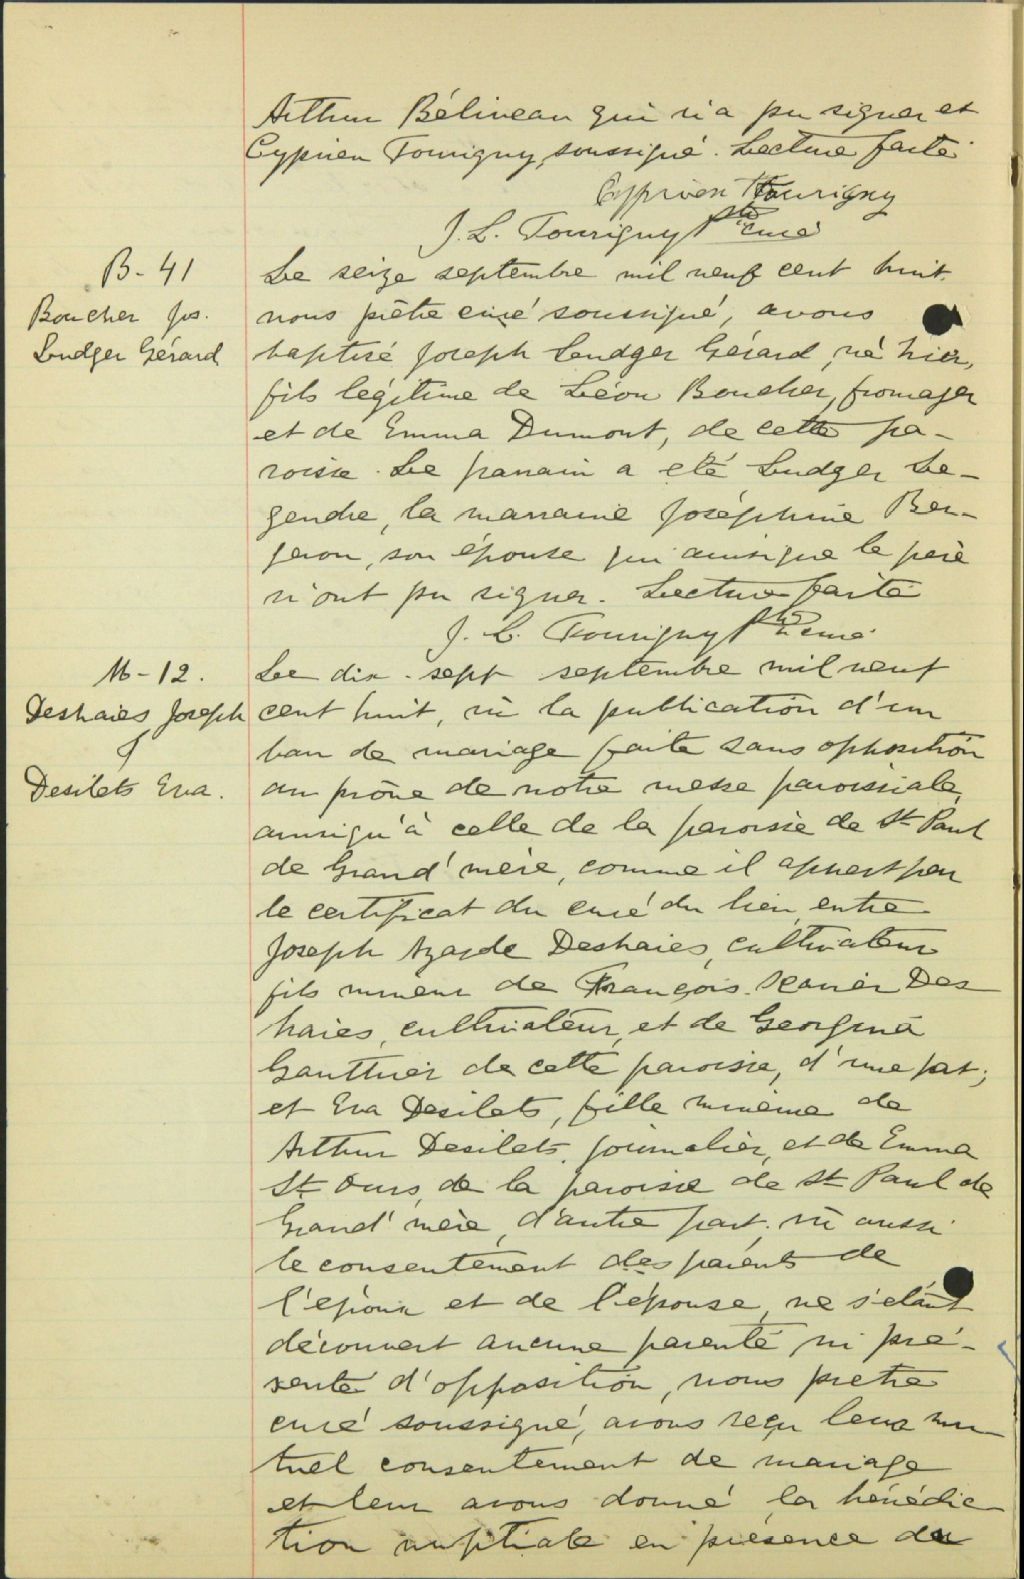 Arthur Béliveau qui n'a pu signer et
Cyprien Tourigny, soussigné. Lecture faite.
Cyprien Tourigny
J. L. Tourigny Ptre curé
B-41
Boucher Jos.
Ludger Gérard
Le seize septembre mil neuf cent huit.
nous prêtre curé soussigné, avons
baptisé Joseph Ludger Gérard, né hier,
fils légitime de Léon Boucher, fromager
et de Emma Dumont, de cette pa-
roisse. Le parrain a été Ludger Le-
gendre, la marraine Joséphine Ber-
geron, son épouse qui ainsi que le père
n'ont pu signer. Lecture faite
J. L. Tourigny Ptre curé
M-12.
Deshaies Joseph
&
Desilets Eva.
Le dix-sept septembre mil neuf
cent huit, vu la publication d'un
ban de mariage faite sans opposition
au prône de notre messe paroissiale,
ainsi qu'à celle de la paroisse de St Paul
de Grand'mère, comme il appert par
le certificat du curé du lieu, entre
Joseph Deshaies, cultivateur
fils mineur de François-Xavier Des
haies, cultivateur, et de Georgina
Gauthier de cette paroisse, d'une part;
et Eva Desilets, fille mineure de
Arthur Desilets, journalier, et de Emma
St Ours, de la paroisse de St Paul de
Grand'mère, d'autre part; vu aussi
le consentement des parents de
l'époux et de l'épouse, ne s'étant
découvert aucune parenté ni pré-
senté d'opposition, nous prêtre
curé soussigné, avons reçu leur mu
tuel consentement de mariage
et leur avons donné la bénédic-
tion nuptiale en présence de